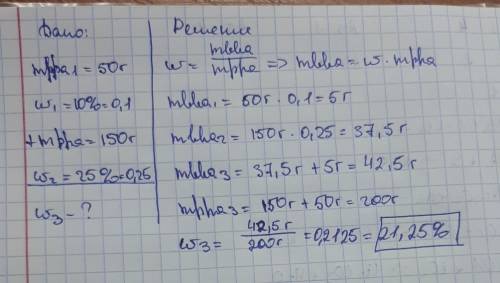 Дано:
mрра1 = 50г
w₁ = 10% = 0,1
+mрра = 150г
w₂ = 25% = 0,25
w₃ - ?
Решение
w = mвва/mрра => mвва = w · mрра
mвва₁ = 50г · 0,1 = 5г
mвва₂ = 150г · 0,25 = 37,5г
mвва₃ = 37,5г + 5г = 42,5г
mрра₃ = 150г + 50г = 200г
w₃ = 42,5г/200г = 0,2125 = 21,25%